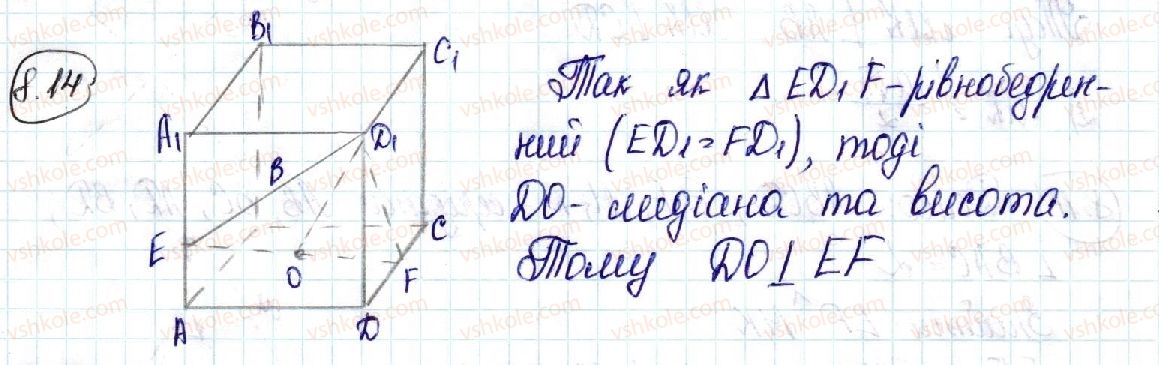 8.14
B₁
C₁
A₁
D₁
B
E
O
F
C
A
D
Так як Δ ED₁F-рівнобедрен-
ний (ED₁=FD₁), тоді
DO-медіана та висота.
Тому DO⊥EF
vshkole.com